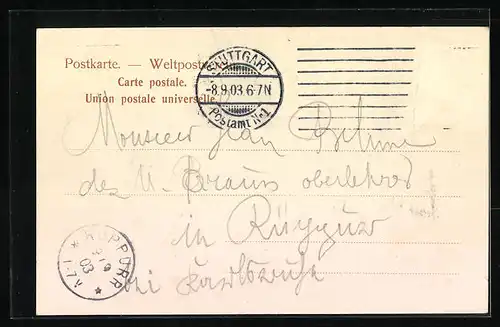 Postkarte. — Weltpostv
Carte postale.
Union postale universelle.
STUTTGART
-8.9.03 6-7N
Postamt No1
Monsieur Jean
des H. Braun Oberlehrer
in Rüppurr
bei Karlsruhe
* RÜPPURR *
9/9
03
1-7V